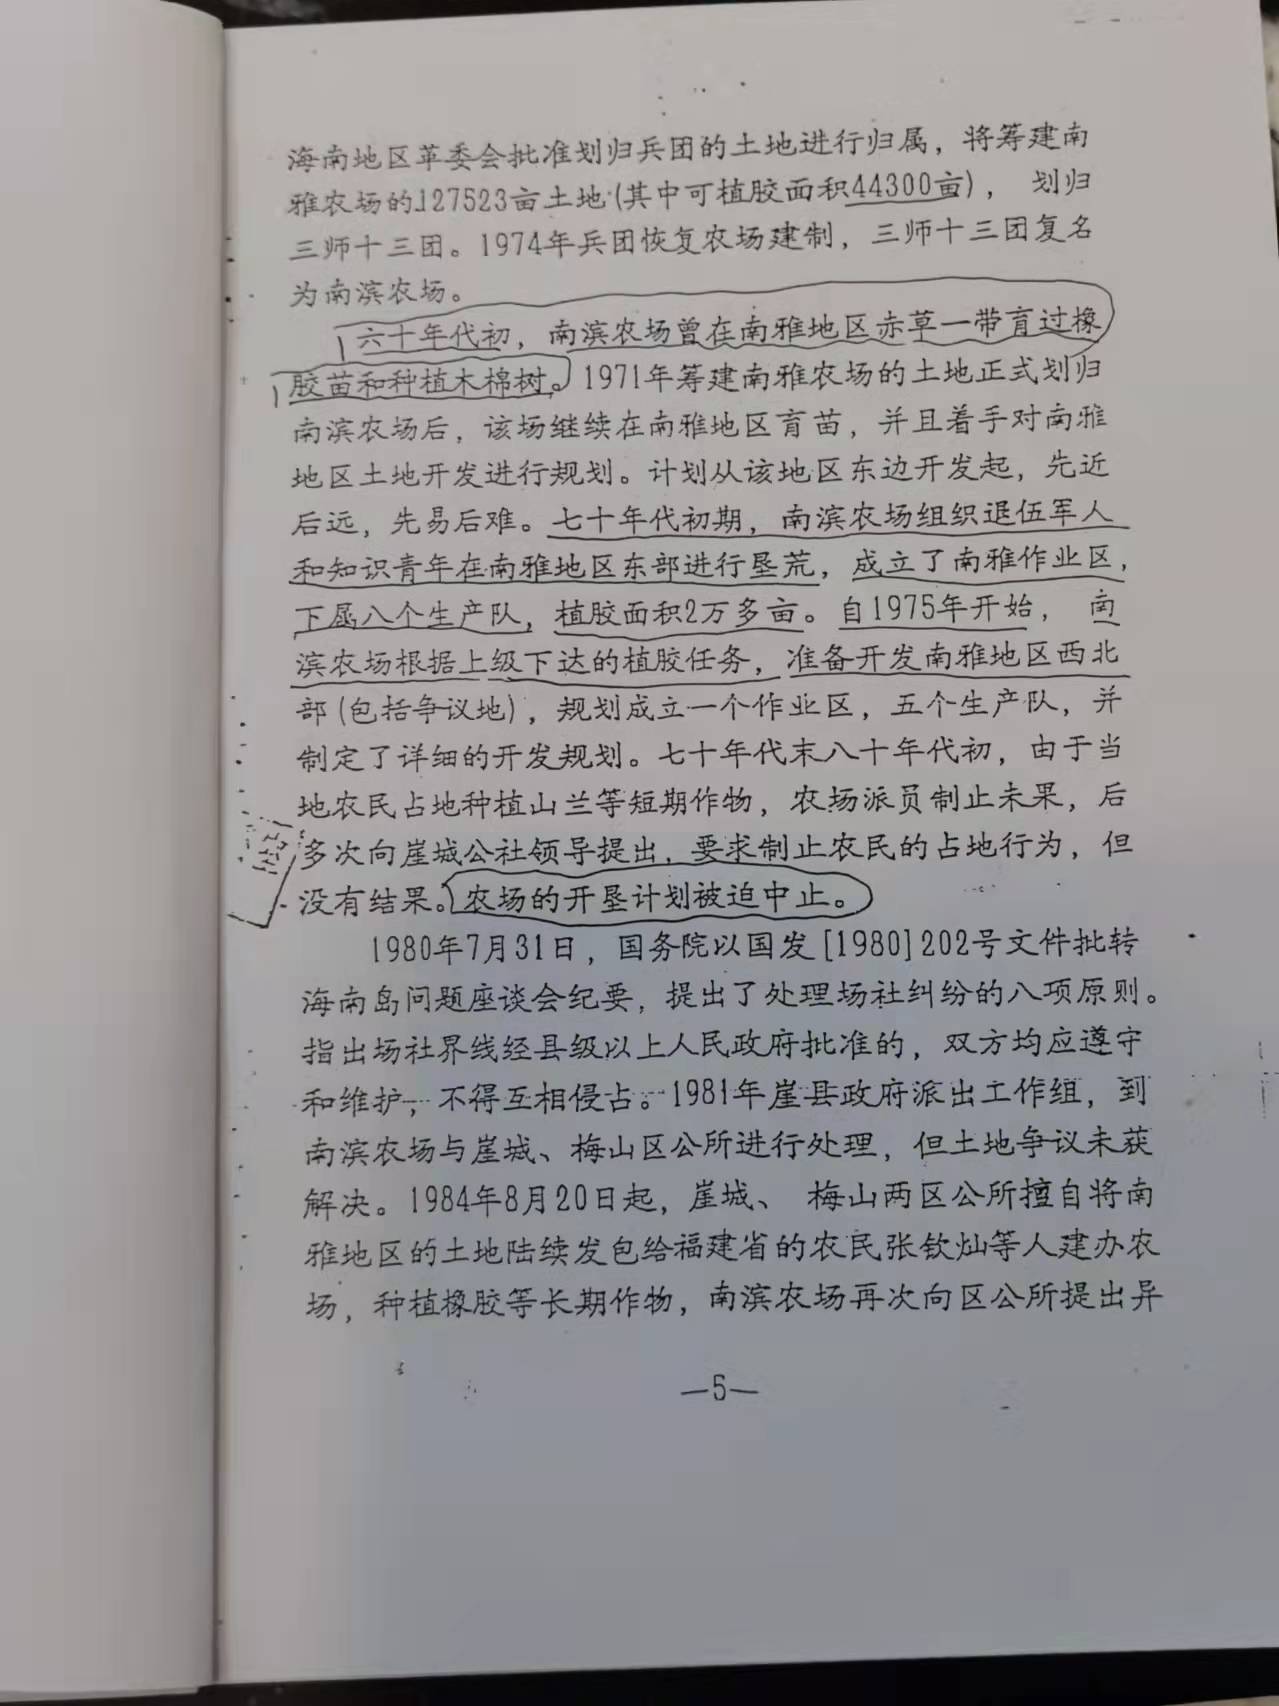 海南地区革委会批准划归兵团的土地进行归属，将筹建南
雅农场的127523亩土地(其中可植胶面积44300亩)， 划归
三师十三团。1974年兵团恢复农场建制，三师十三团复名
为南滨农场。
六十年代初，南滨农场曾在南雅地区赤草一带育过橡
胶苗和种植木棉树。1971年筹建南雅农场的土地正式划归
南滨农场后，该场继续在南雅地区育苗，并且着手对南雅
地区土地开发进行规划。计划从该地区东边开发起，先近
后远，先易后难。七十年代初期，南滨农场组织退伍军人
和知识青年在南雅地区东部进行垦荒，成立了南雅作业区，
下属八个生产队，植胶面积2万多亩。自1975年开始， 南
滨农场根据上级下达的植胶任务，准备开发南雅地区西北
部(包括争议地)，规划成立一个作业区，五个生产队，并
制定了详细的开发规划。七十年代末八十年代初，由于当
地农民占地种植山兰等短期作物，农场派员制止未果，后
多次向崖城公社领导提出，要求制止农民的占地行为，但
没有结果。农场的开垦计划被迫中止。
1980年7月31日，国务院以国发[1980]202号文件批转
海南岛问题座谈会纪要，提出了处理场社纠纷的八项原则。
指出场社界线经县级以上人民政府批准的，双方均应遵守
和维护，不得互相侵占。1981年崖县政府派出工作组，到
南滨农场与崖城、梅山区公所进行处理，但土地争议未获
解决。1984年8月20日起，崖城、 梅山两区公所擅自将南
雅地区的土地陆续发包给福建省的农民张钦灿等人建办农
场，种植橡胶等长期作物，南滨农场再次向区公所提出异
—5—